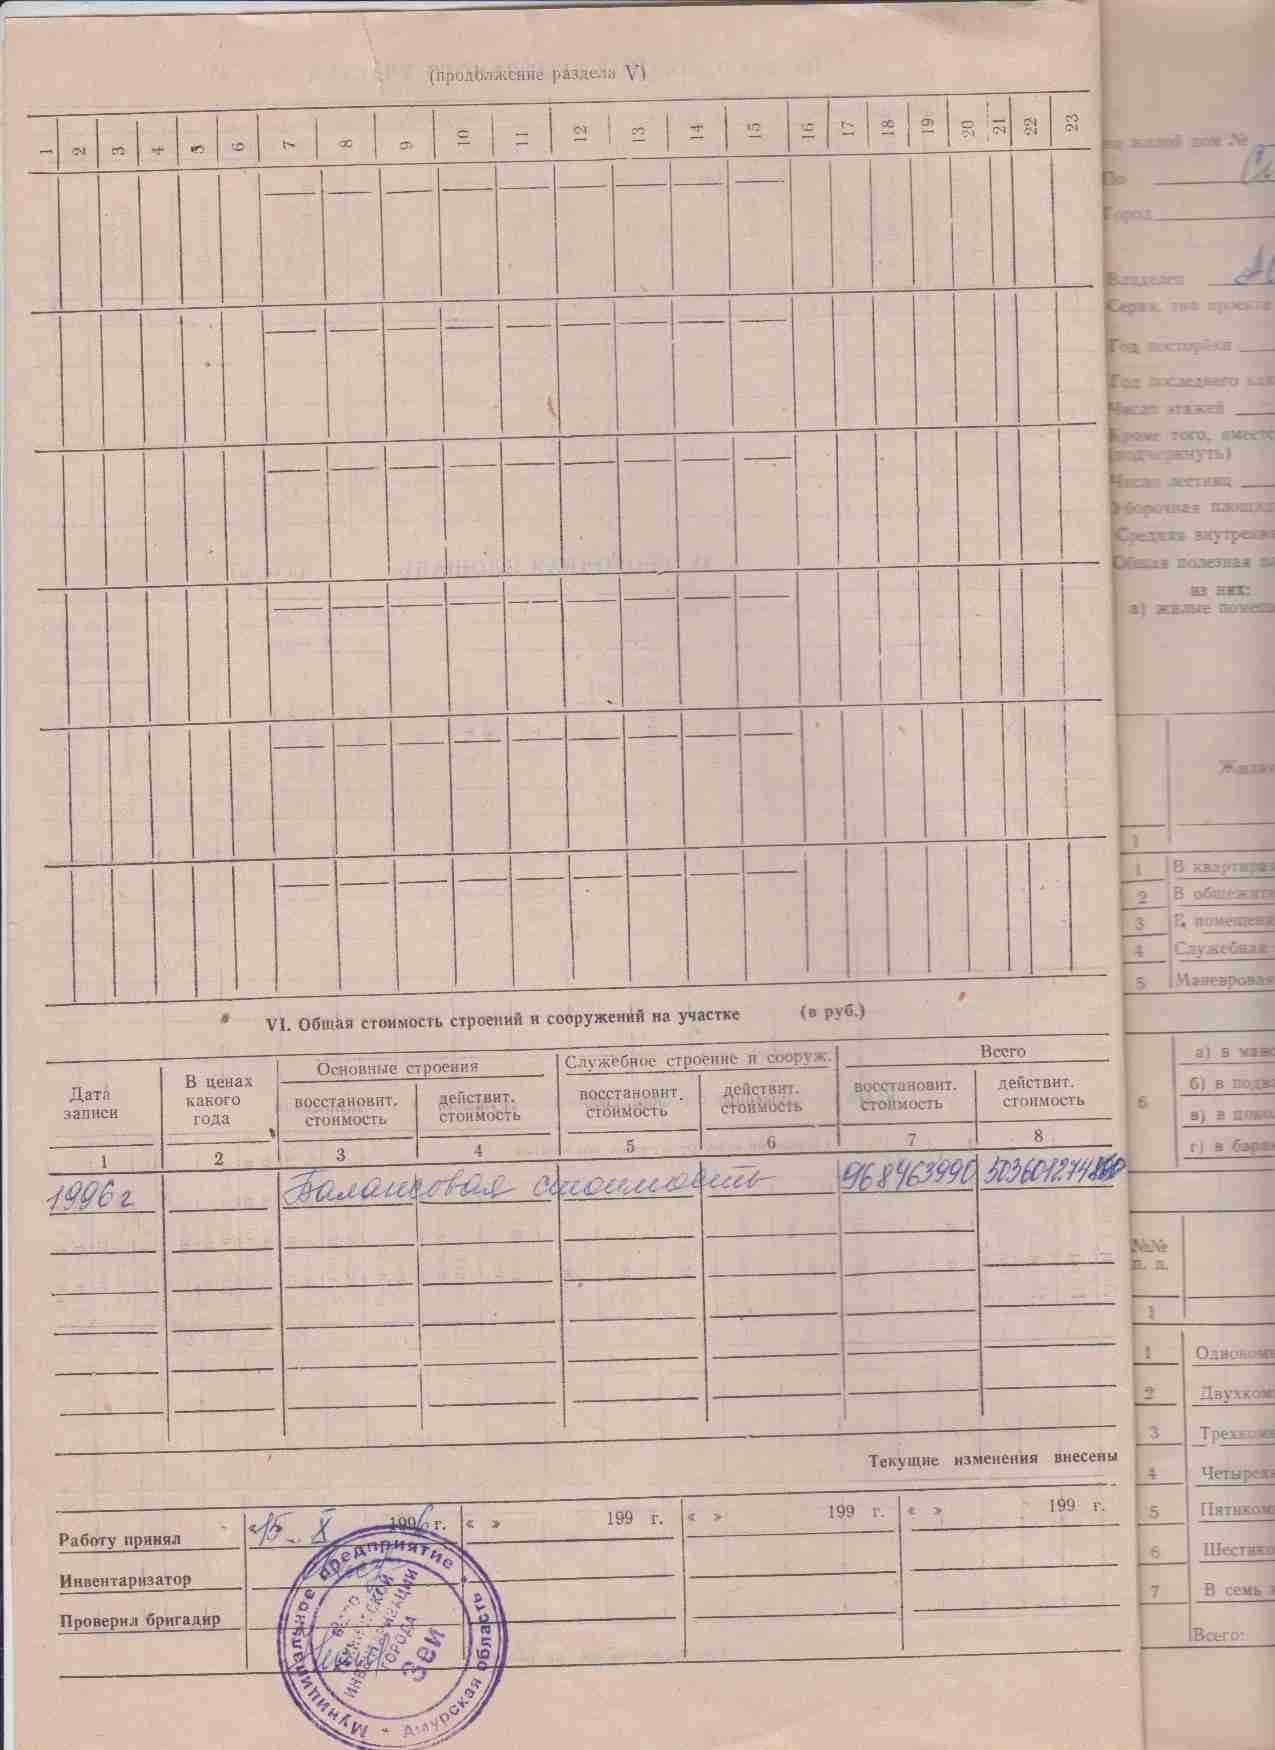 (продолжение раздела V)
1 2 3 4 5 6 7 8 9 10 11 12 13 14 15 16 17 18 19 20 21 22 23
VI. Общая стоимость строений и сооружений на участке (в руб.)
Дата записи
В ценах какого года
Основные строения
Служебное строение и сооруж.
Всего
восстановит. стоимость
действит. стоимость
восстановит. стоимость
действит. стоимость
восстановит. стоимость
действит. стоимость
1 2 3 4 5 6 7 8
1996 г Балансовая стоимость 968463990
Текущие изменения внесены
Работу принял «15» X 1996 г. « » 199 г. « » 199 г. « » 199 г.
Инвентаризатор
Проверил бригадир
Муниципальное предприятие * Амурская область *
БЮРО
ТЕХНИЧЕСКОЙ
ИНВЕНТАРИЗАЦИИ
ГОРОДА
Зеи
на жилой дом №
По
Город
Владелец
Серия, тип проекта
Год постройки
Год последнего
Число этажей
Кроме того,
(подчеркнуть)
Число лестниц
Уборочная
Средняя
Общая полезная
из них:
а) жилые
1
1 В
2 В
3 В
4 Служебная
5 Маневровая
6
а) в
б) в
в) в
г) в
№№
п. п.
1
1
2
3
4
5
6
7 В семь
Всего: